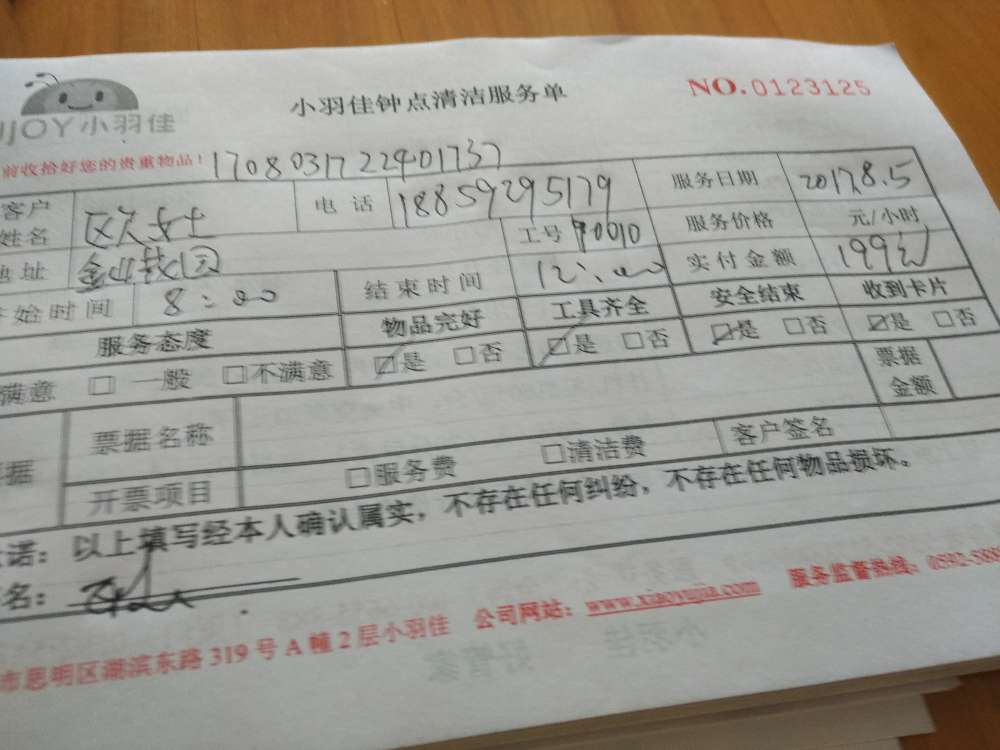 JOY小羽佳
小羽佳钟点清洁服务单
NO.0123125
前收拾好您的贵重物品！
客户姓名
女士
电 话
18859295179
服务日期
2017.8.5
地址
工号
服务价格
元/小时
开始时间
8:00
结束时间
12:00
实付金额
199元
服务态度
物品完好
工具齐全
安全结束
收到卡片
满意 □ 一般 □不满意
☑是 □否
☑是 □否
☑是 □否
☑是 □否
票据名称
票据金额
开票项目
□服务费 □清洁费
客户签名
诺：以上填写经本人确认属实，不存在任何纠纷，不存在任何物品损坏。
名：
市思明区湖滨东路319号A幢2层小羽佳 公司网站：www.xiaoyujia.com 服务监督热线：0592-588